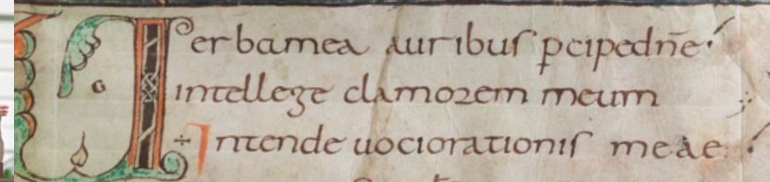 Verba mea auribus p̄cipe dn̄e
intellege clamorem meum
Intende uoci orationis meae